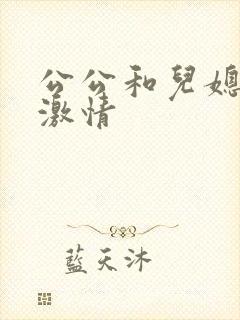 公公和兒媳
激情
藍天沐